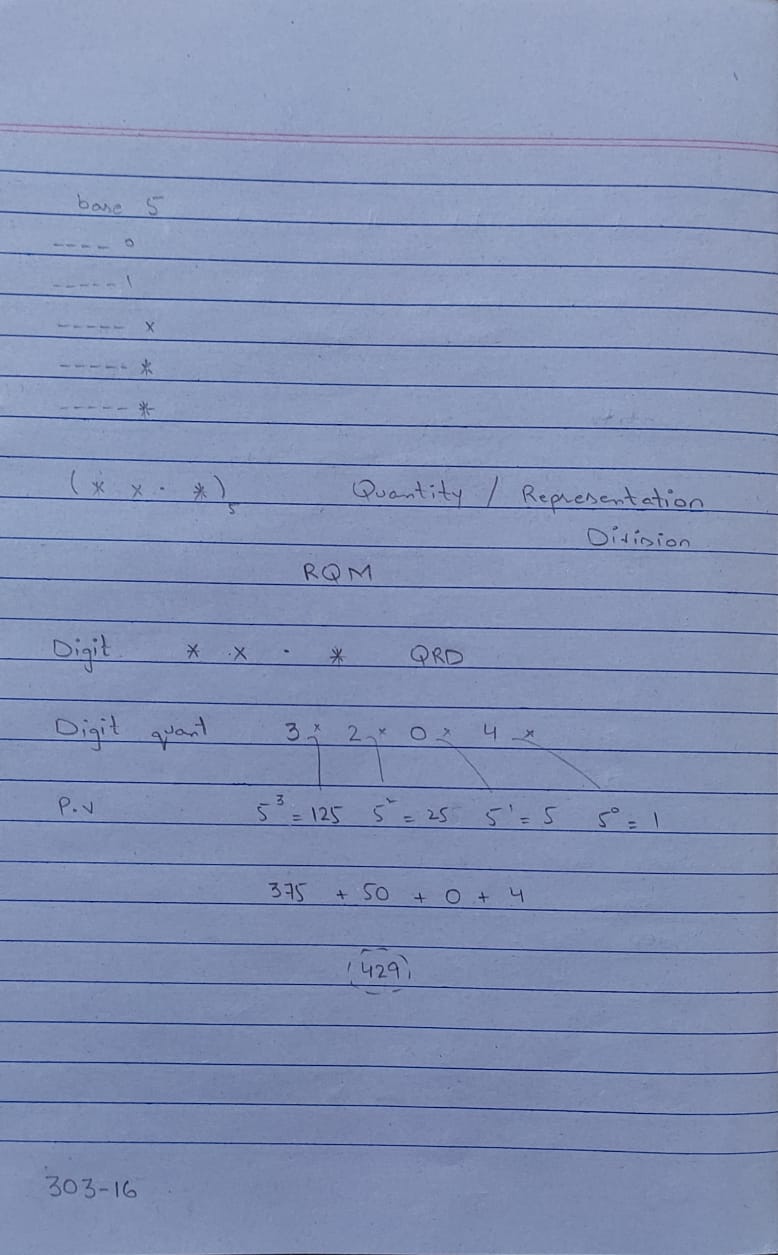 base 5
---- 0
----- 1
----- x
----- *
----- *
(* x . *)5 Quantity / Representation
Division
RQM
Digit * x . * QRD
Digit quant 3 x 2 x 0 x 4 x
P.V 5³ = 125 5² = 25 5¹ = 5 5⁰ = 1
375 + 50 + 0 + 4
(429)
303-16